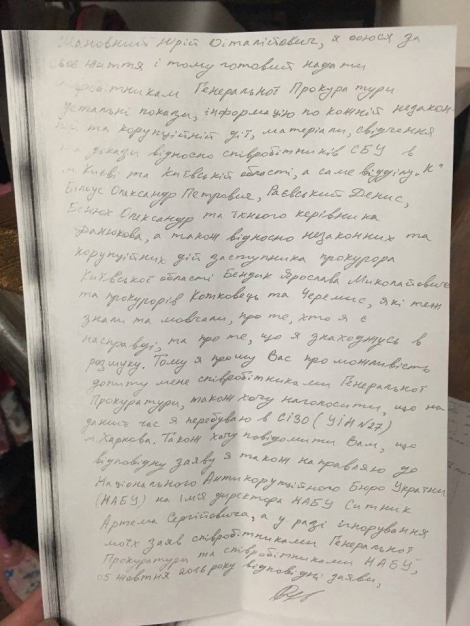 Шановний Юрій Віталійович, я боюся за
своє життя і тому готовий надати
співробітникам Генеральної Прокуратури
детальні покази, інформацію по кожній незакон-
ній та корупційній дії, матеріали, свідчення
та докази відносно співробітників СБУ в
м Києві та Київській області, а саме відділу "К"
Білоус Олександр Петрович, Раєвський Денис,
Олександр та їхнього керівника
а також відносно незаконних та
корупційних дій заступника прокурора
Київської області Бендик Ярослава Миколайовича
та прокурорів Котковець та Черемис, які теж
знали та мовчали, про те, хто я є
насправді, та про те, що я знаходжусь в
розшуку. Тому я прошу Вас про можливість
допиту мене співробітниками Генеральної
Прокуратури, також хочу наголосити, що на
даний час я перебуваю в СІЗО (УІН N27)
м. Харкова. Також хочу повідомити Вам, що
відповідну заяву я також направляю до
Національного Антикорупційного Бюро України
(НАБУ) на ім'я директора НАБУ Ситник
Артема Сергійовича, а у разі ігнорування
моїх заяв співробітниками Генеральної
Прокуратури та співробітниками НАБУ,
05 жовтня 2016 року відповідні заяви,